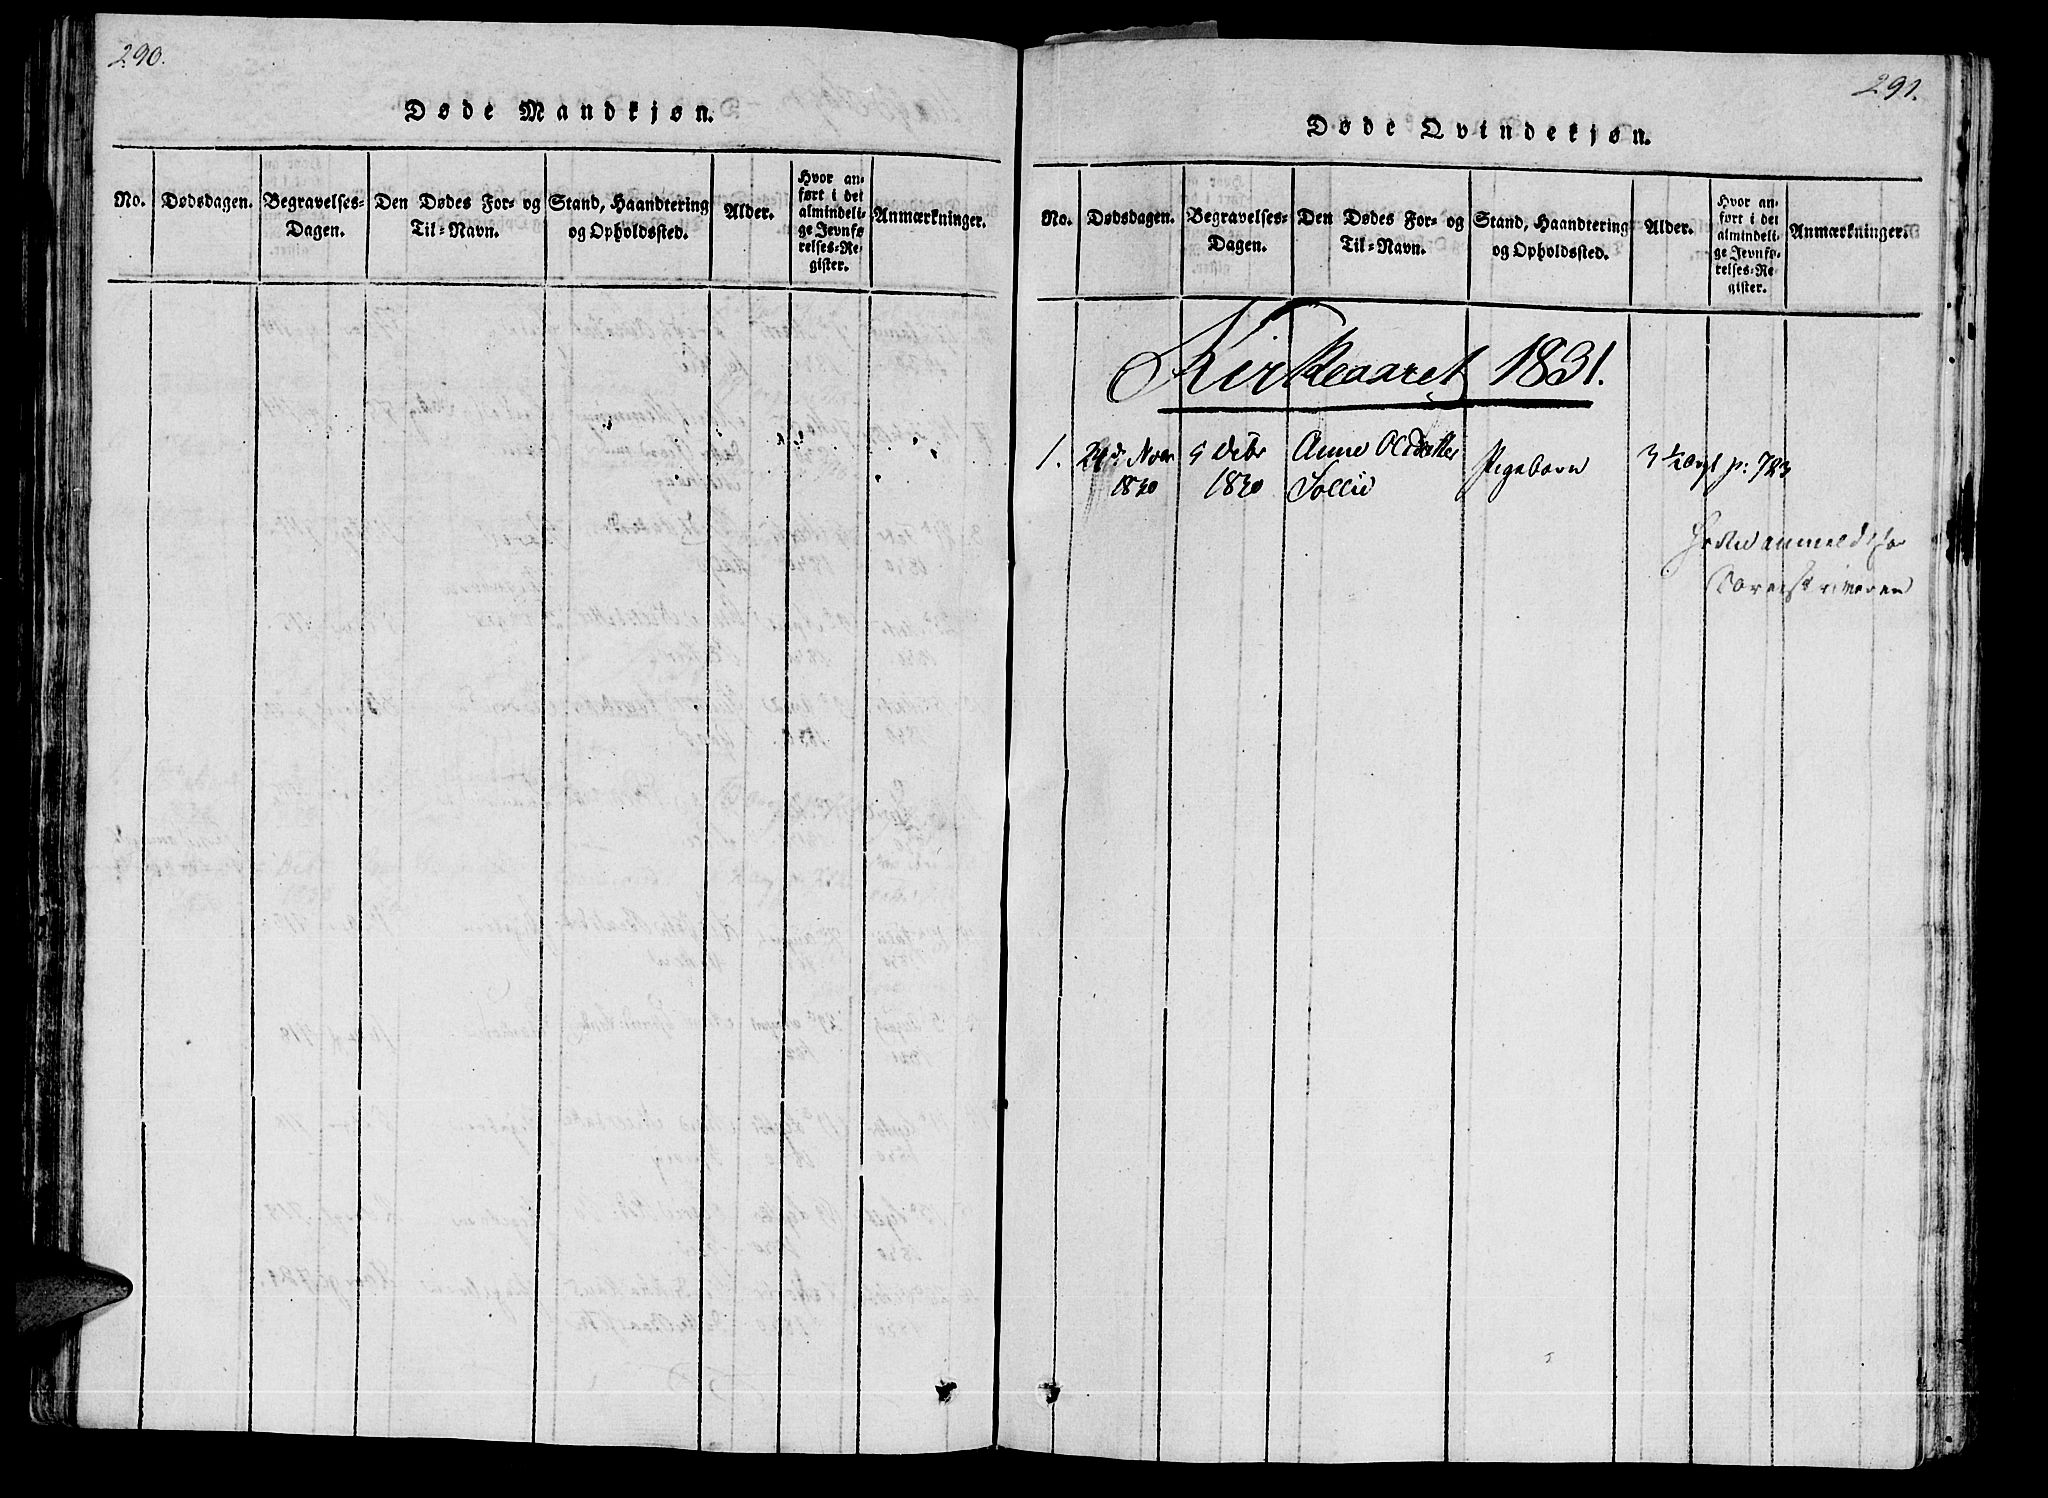 290.
Døde Mandkjøn.
No. Dødsdagen. Begravelses-Dagen. Den Dødes For- og Til-Navn. Stand, Haandtering og Opholdssted. Alder. Hvor anført i det almindelige Jevnførelses-Register. Anmærkninger.
291.
Døde Qvindekjøn.
No. Dødsdagen. Begravelses-Dagen. Den Dødes For- og Til-Navn. Stand, Haandtering og Opholdssted. Alder. Hvor anført i det almindelige Jevnførelses-Register. Anmærkninger.
Kirkeaaret 1831.
1. 24d. Novr 9 Debr Anne Olsdatter Pigebarn 3 1/2 p: 723
1830 1830 Sollie
anmeldt for